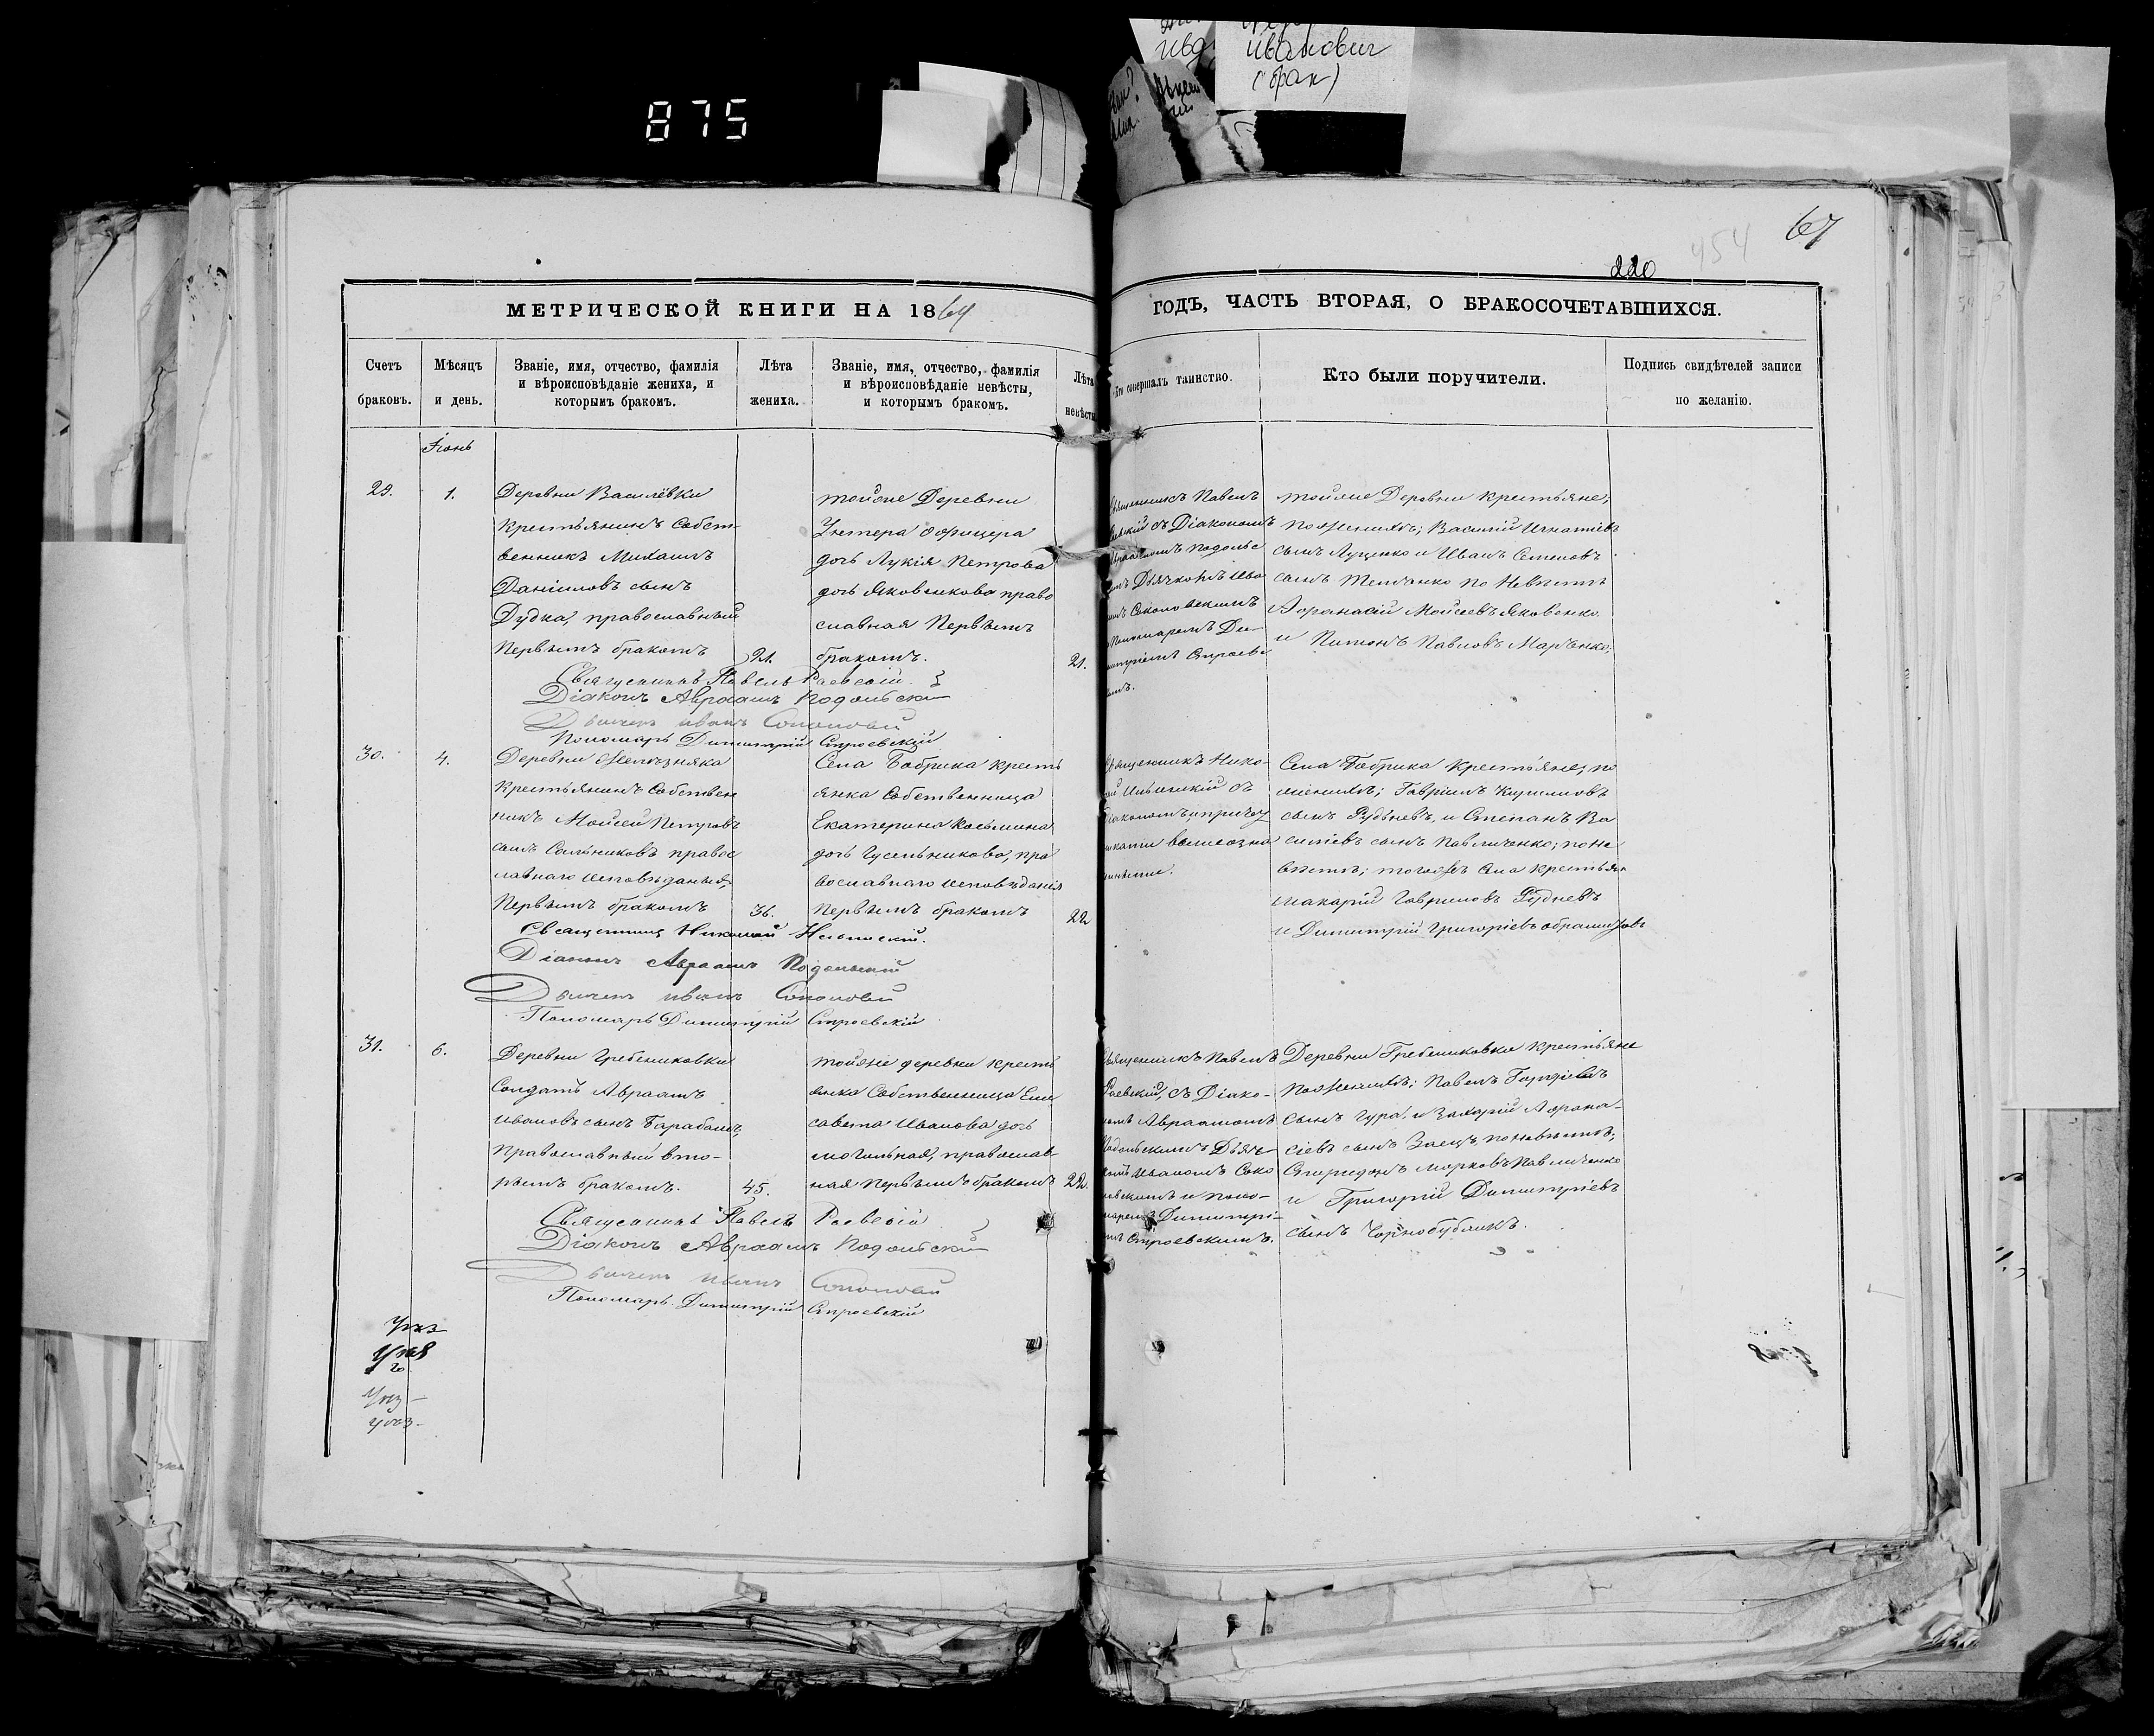 875
Иванович
(брак)
67
454
220
МЕТРИЧЕСКОЙ КНИГИ НА 1869
ГОДЪ, ЧАСТЬ ВТОРАЯ, О БРАКОСОЧЕТАВШИХСЯ.
Счетъ браковъ.
Мѣсяцъ и день.
Званіе, имя, отчество, фамилія
и вѣроисповѣданіе жениха, и
которымъ бракомъ.
Лѣта жениха.
Званіе, имя, отчество, фамилія
и вѣроисповѣданіе невѣсты,
и которымъ бракомъ.
Лѣта невѣсты
Кто совершалъ таинство.
Кто были поручители.
Подпись свидѣтелей записи
по желанію.
Іюнь
29.
1.
Деревни Васильевки
Крестьянинъ Собст-
венникъ Михаилъ
Даніиловъ сынъ
Дудка, православный
Первымъ бракомъ
21.
тойже Деревни
Унтера офицера
дочь Лукія Петрова
дочь Яковенкова право
славная Первымъ
бракомъ.
21.
Священникъ Павелъ
съ Діакономъ
Подольс
Дьячкомъ Ива
Соколовскимъ
Пономаремъ Ди-
митріемъ Строевс
тойже Деревни крестьяне,
по женихѣ; Василій Игнатіевъ
сынъ Луценко и Иванъ Семеновъ
сынъ по Невѣстѣ
Афанасій Моисеевъ Яковенко
и Павловъ Марченко,
Священникъ Павелъ Раевскій
Діаконъ Авраамъ Подольскій
Дьячекъ Иванъ
Пономарь Димитрій Строевскій
30.
4.
Деревни Железняка
Крестьянинъ Собствен
никъ Моисей Петровъ
сынъ Сальниковъ правос
лавнаго исповѣданія,
Первымъ бракомъ
36.
Села Бобрика Кресть
янка Собственница
Екатерина Косьмина
дочь Гусельникова, пра
вославнаго исповѣданія
Первымъ бракомъ
22
Священникъ Нико-
съ
Діакономъ и причет
никами вышеозна
ченными.
Села Бобрика Крестьяне, по
женихѣ; Гавріилъ Кирилловъ
сынъ Рудневъ, и Степанъ Ва
силіевъ сынъ Павличенко; по не
вѣстѣ; тогожъ Села крестьян
Макарій Гавриловъ Рудневъ
и Димитрій Григоріевъ
Священникъ Николай
Діаконъ Авраамъ Подольскій
Дьячекъ Иванъ
Пономарь Димитрій Строевскій
31.
6.
Деревни Гребениковки
Солдатъ Авраамъ
Ивановъ сынъ Барабашъ,
Православный вто-
рымъ бракомъ.
45.
тойже деревни кресть
янка Собственница Ели
савета Иванова дочь
Могильная, православ-
ная Первымъ бракомъ
22.
Священникъ Павелъ
Раевскій, съ Діако-
номъ Авраамомъ
Подольскимъ Дьяч-
комъ Иваномъ Соко
ловскимъ и поно-
маремъ Димитрі-
емъ Строевскимъ.
Деревни Гребениковки крестьяне
По женихѣ; Павелъ Гордіевъ
сынъ Гура, и Захарій Афана-
сіевъ сынъ Заецъ, по невѣстѣ;
Спиридонъ Марковъ Павличенко
и Григорій Димитріевъ
сынъ Чорнобубликъ.
Священникъ Павелъ Раевскій
Діаконъ Авраамъ Подольскій
Дьячекъ Иванъ
Пономарь Димитрій Строевскій